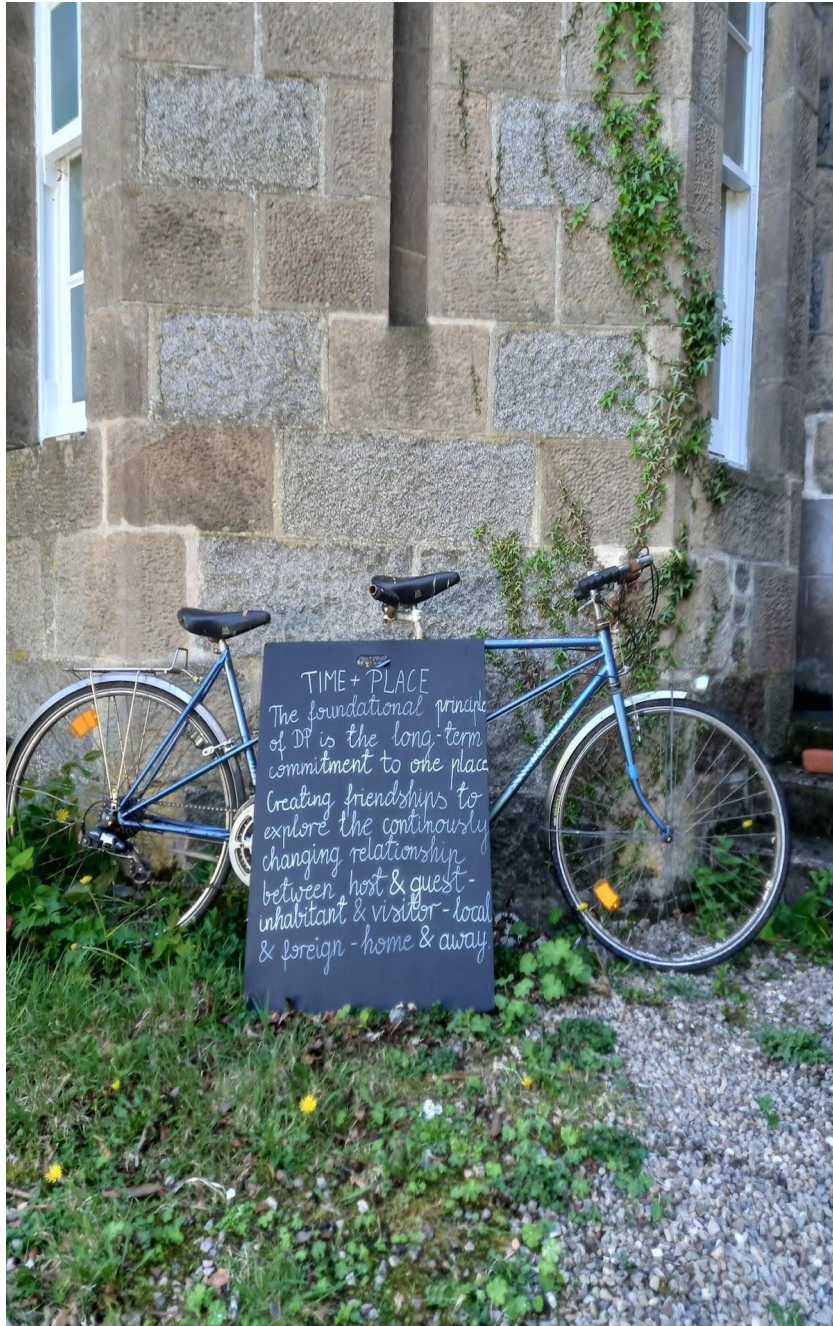 TIME + PLACE
The foundational principle
of DP is the long-term
commitment to one place
Creating friendships to
explore the continously
changing relationship
between host & guest -
inhabitant & visitor - local
& foreign - home & away.